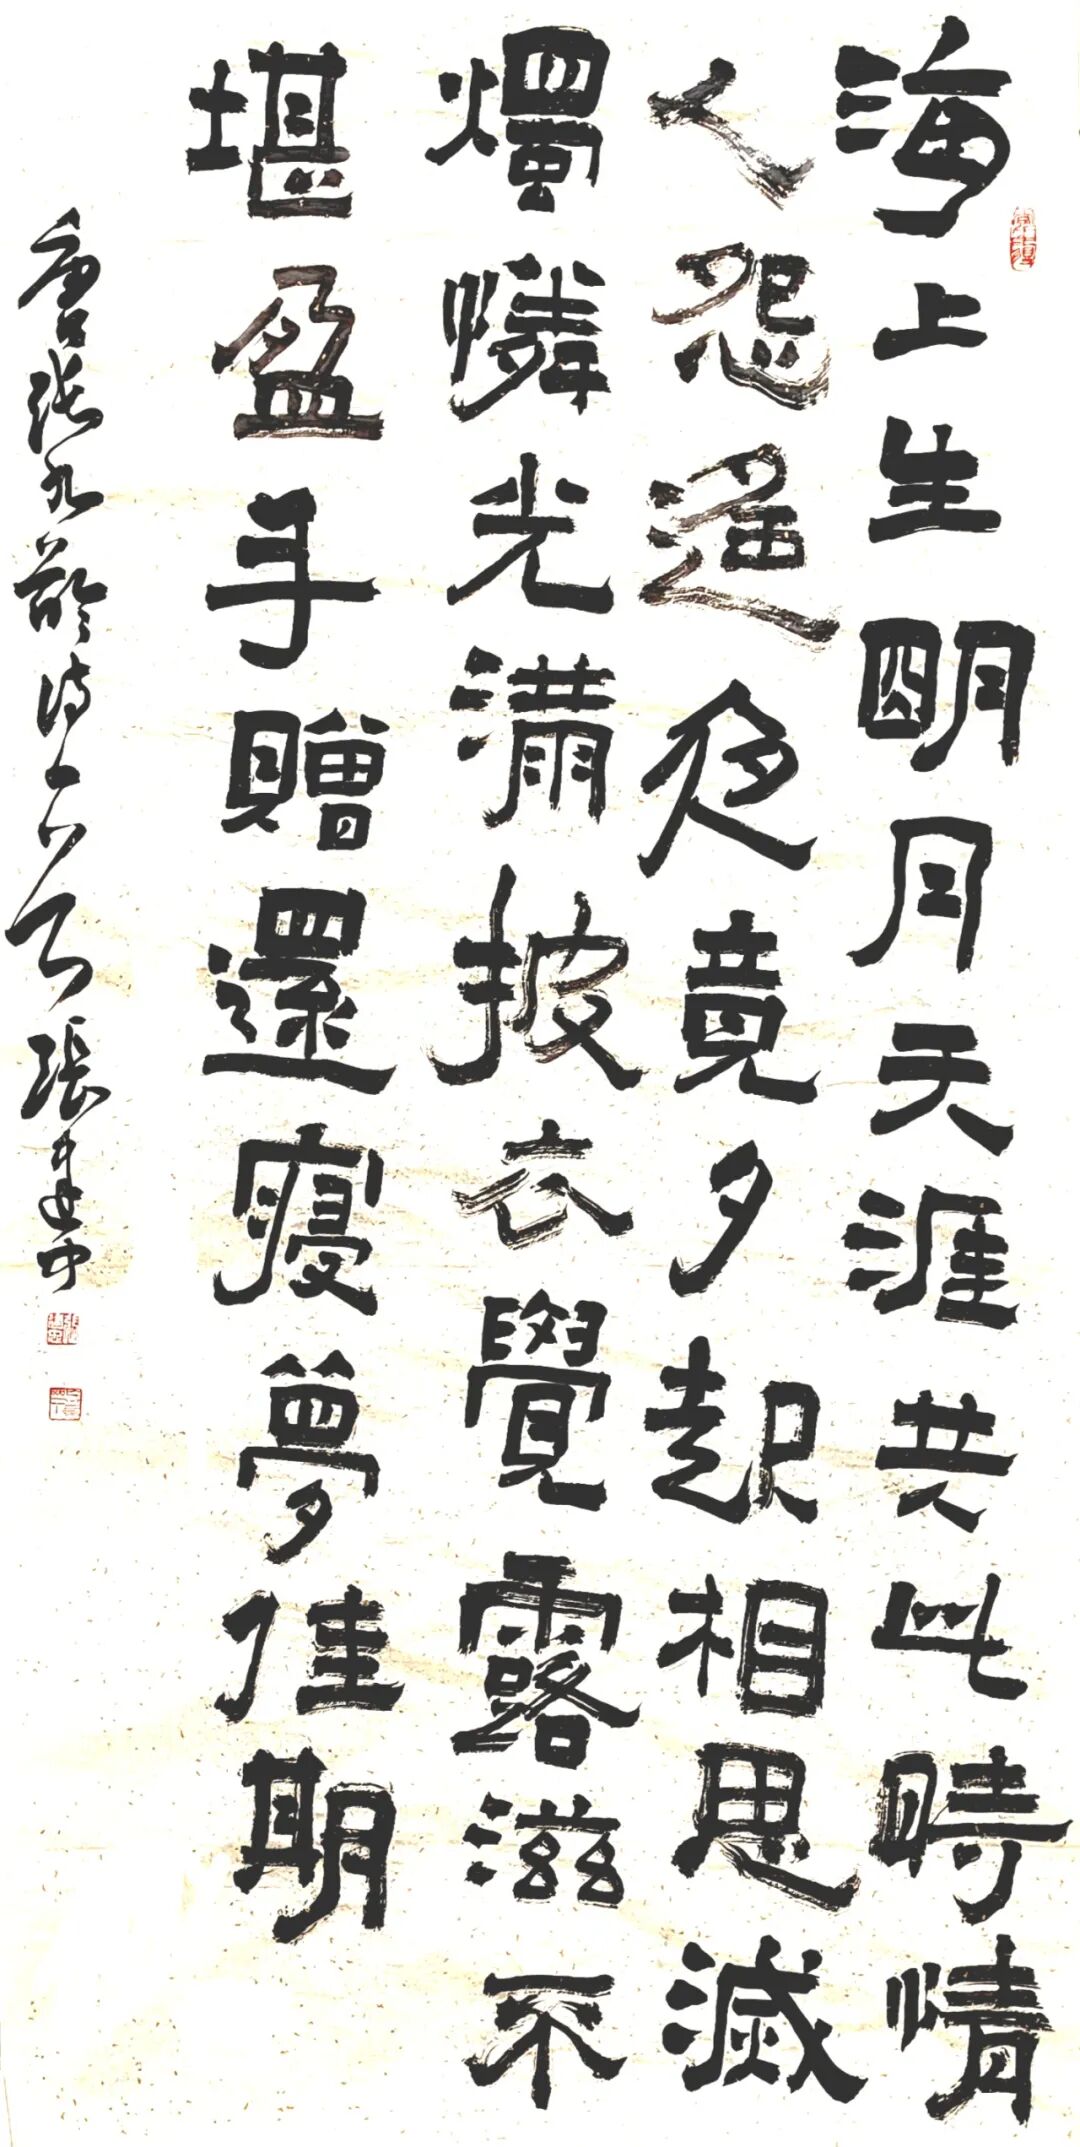 海上生明月天涯共此時情
人怨遙夜竟夕起相思滅
燭憐光滿披衣覺露滋不
堪盈手贈還寢夢佳期
唐張九齡詩一首張建中